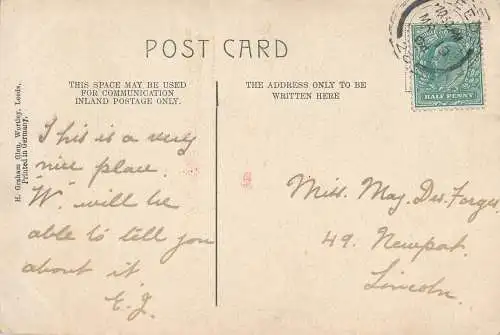 POST CARD
THIS SPACE MAY BE USED
FOR COMMUNICATION
INLAND POSTAGE ONLY.
THE ADDRESS ONLY TO BE
WRITTEN HERE
HALF PENNY
H. Graham Glen, Wortley, Leeds.
Printed in Germany.
This is a very
nice place.
"W." will be
able to tell you
about it
E.J.
Miss. May Des Forges
49. Newport.
Lincoln.